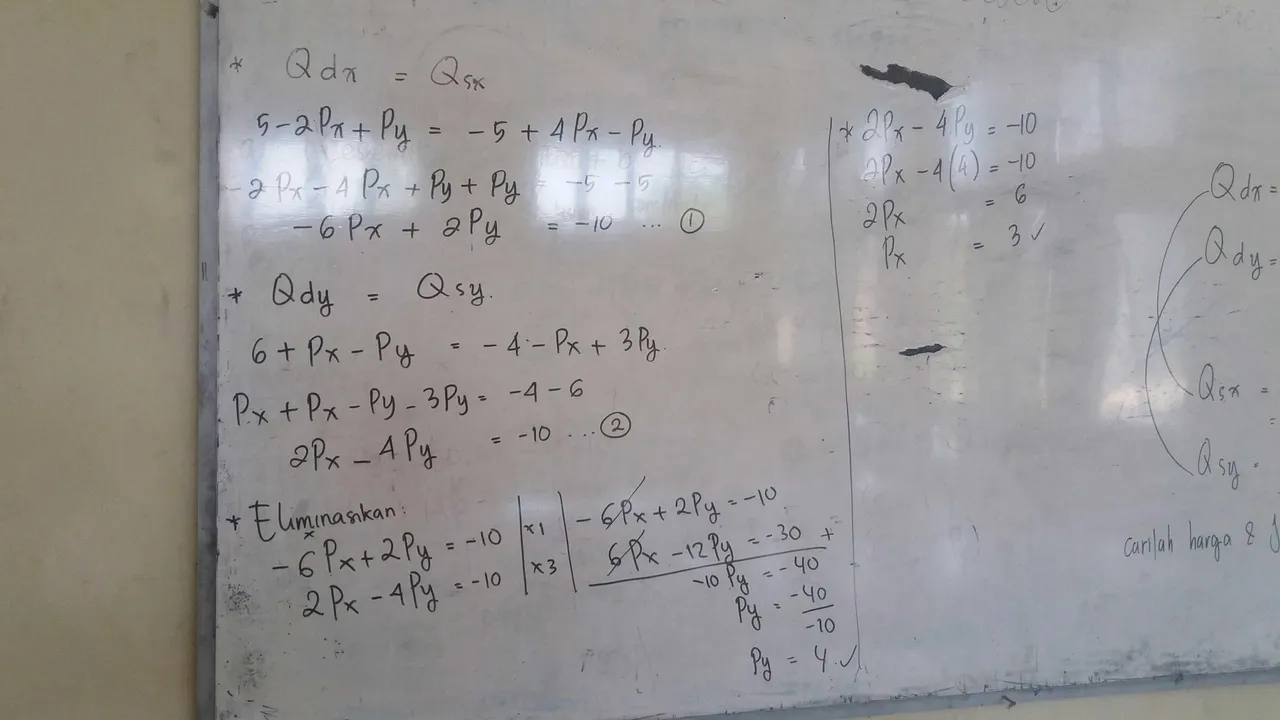 * Qdx = Qsx
5-2Px+Py = -5 + 4Px - Py.
-2Px - 4Px + Py + Py = -5 -5
-6Px + 2Py = -10 ... ①
* Qdy = Qsy.
6 + Px - Py = -4 - Px + 3Py.
Px + Px - Py - 3Py = -4 - 6
2Px - 4Py = -10 ... ②
* Eliminasikan:
-6Px + 2Py = -10 | x1 | -6Px + 2Py = -10
2Px - 4Py = -10 | x3 | 6Px - 12Py = -30 +
-10Py = -40
Py = -40/-10
Py = 4 ✓
* 2Px - 4Py = -10
2Px - 4(4) = -10
2Px = 6
Px = 3 ✓
Qdx =
Qdy =
Qsx =
=
Qsy =
carilah harga &